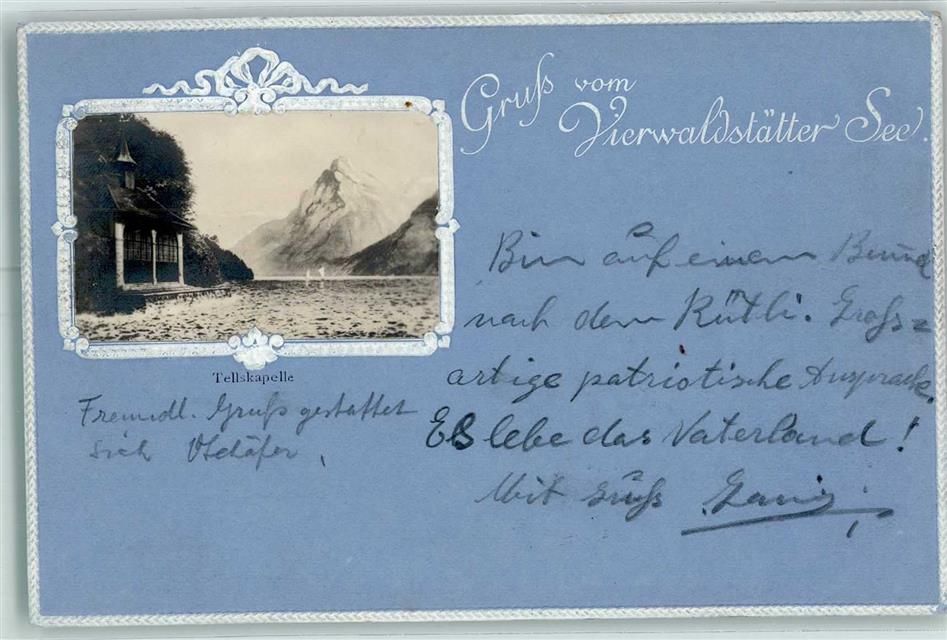 Gruß vom
Vierwaldstätter See.
Tellskapelle
Bin auf einem
nach dem Rütli. Groß=
artige patriotische Ansprache.
Es lebe das Vaterland!
Mit Gruß
Freundl. Gruß gestattet
sich Schäfer,